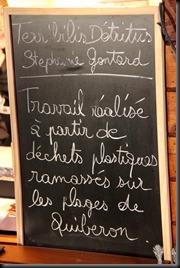 Terribilis Détritus
Stéphanie Gontard
Travail réalisé
à partir de
déchets plastiques
ramassés sur
les plages de
Quiberon.